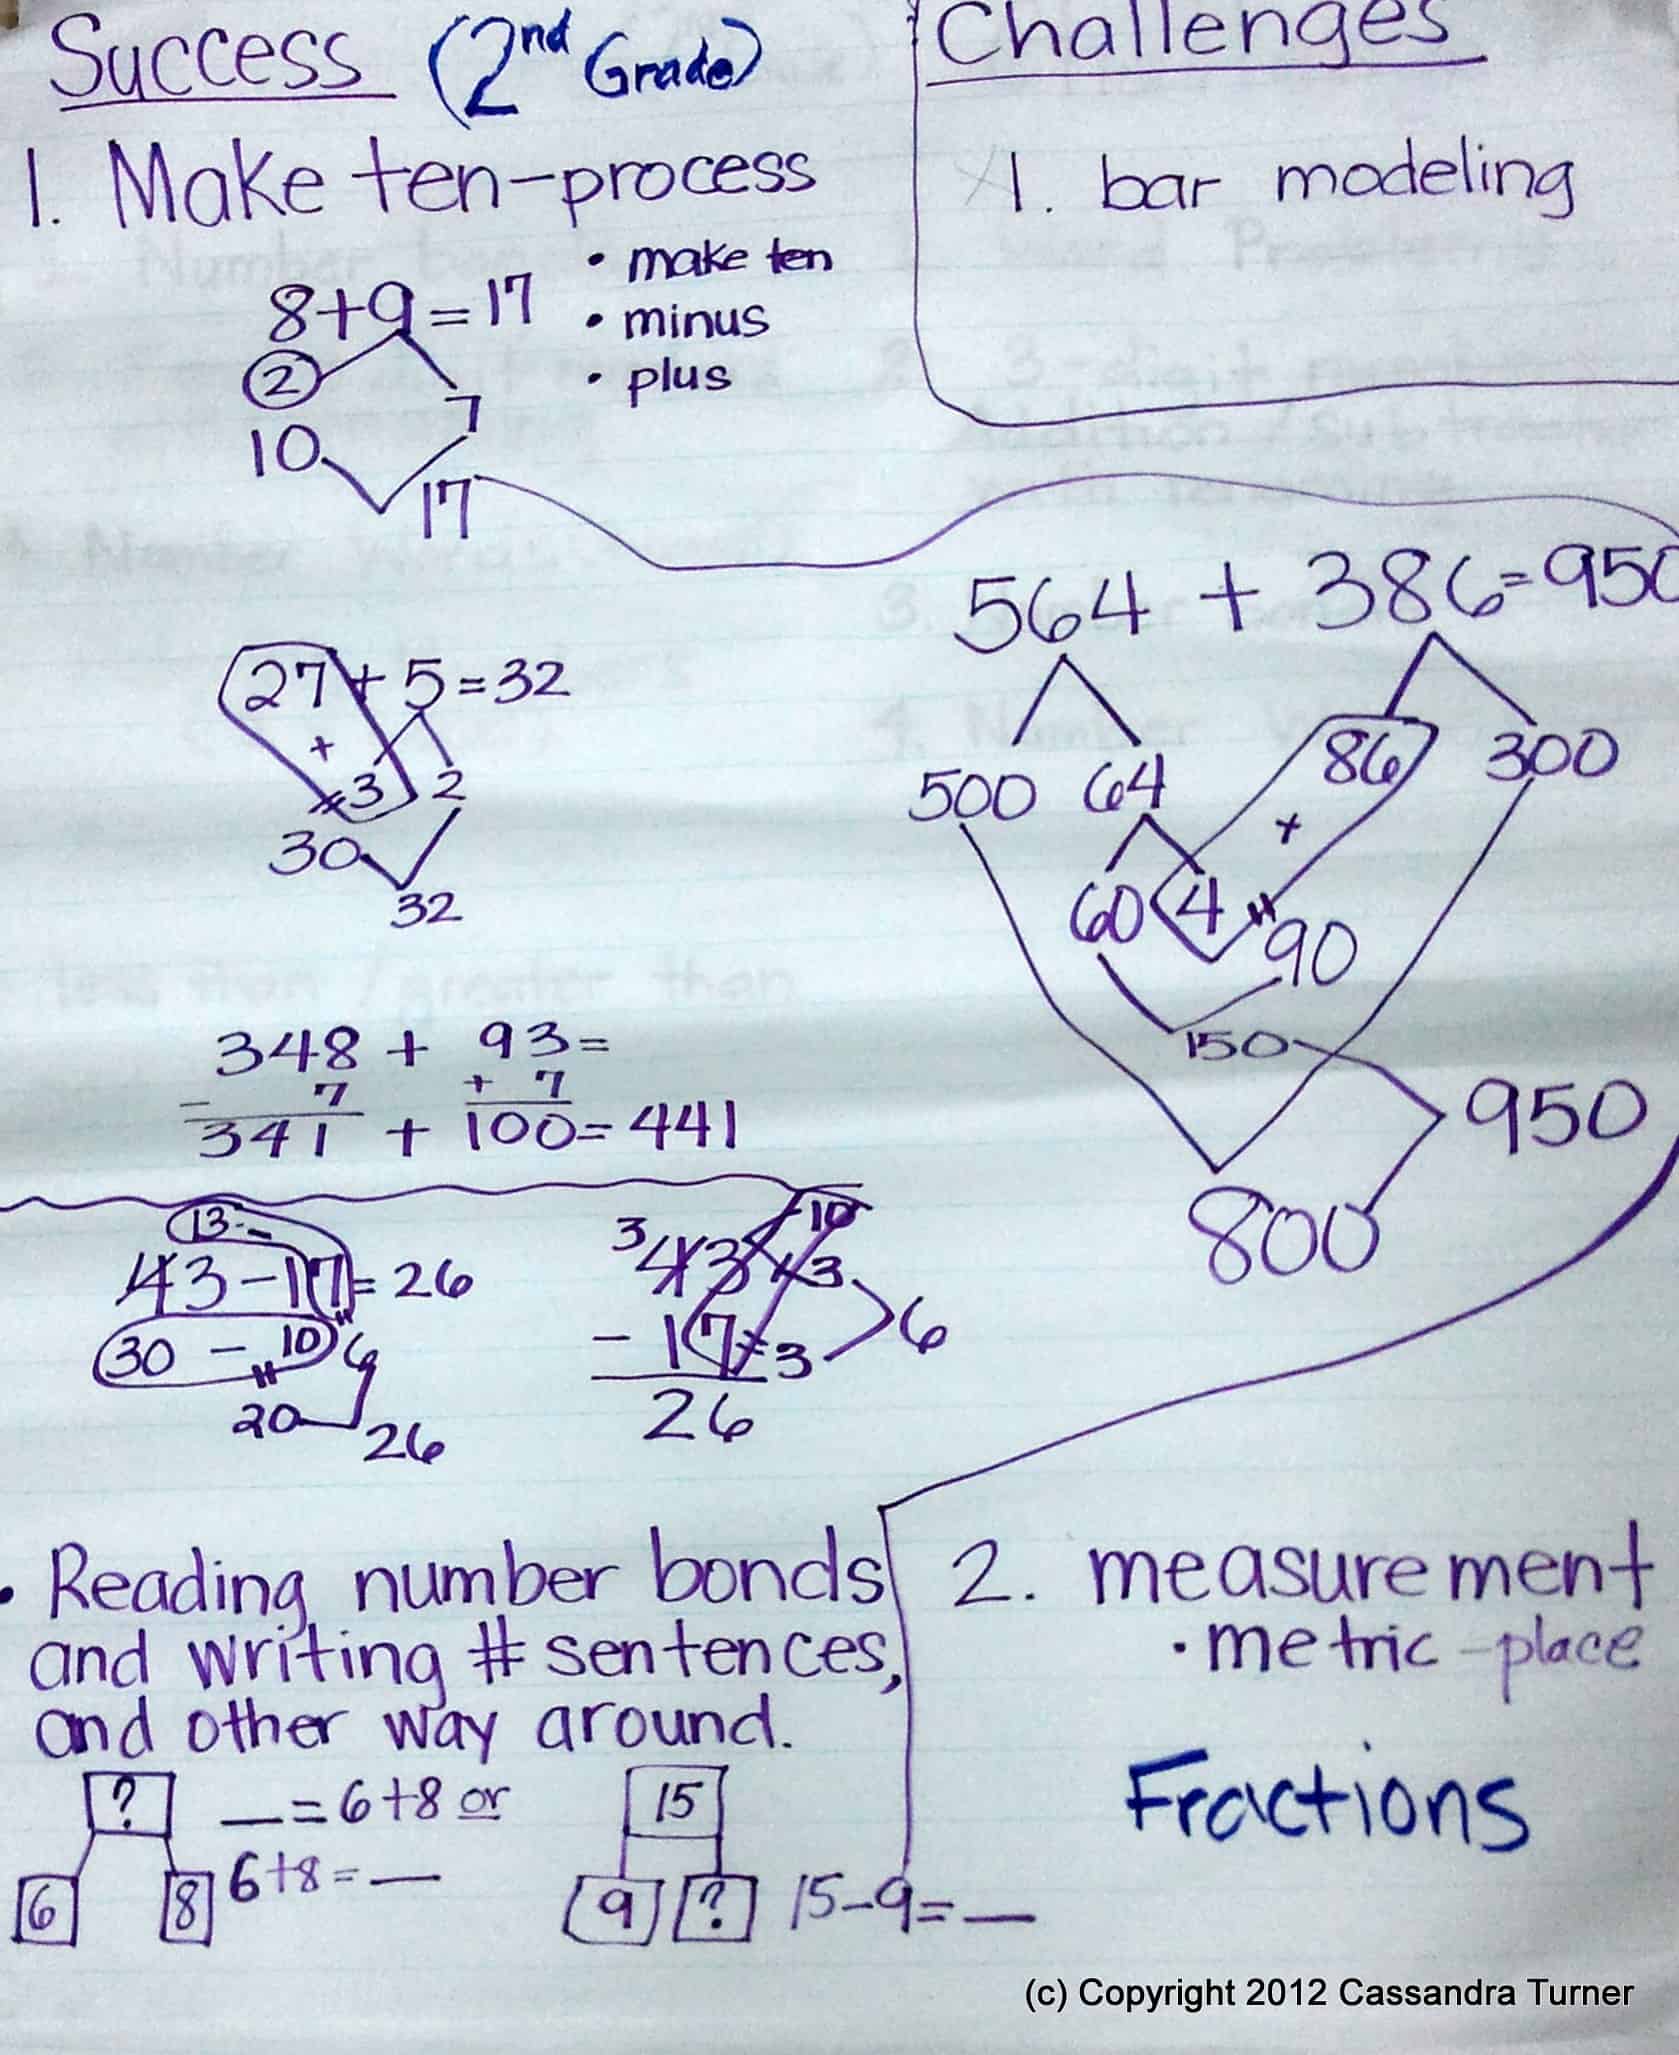 Success (2nd Grade)
Challenges
1. Make ten-process
• make ten
• minus
• plus
8+9=17
2
7
10
17
1. bar modeling
27+5=32
+
3 2
30
32
564 + 386=950
500 64
86 300
+
60 4
90
150
950
800
348 + 93=
- 7 + 7
341 + 100=441
13-
43-17=26
30 - 10 6
20
26
3 10
43 3
- 17 3
6
26
• Reading number bonds
and writing # sentences,
and other way around.
? __=6+8 or
6 8 6+8=__
15
9 ? 15-9=__
2. measurement
• metric-place
Fractions
(c) Copyright 2012 Cassandra Turner